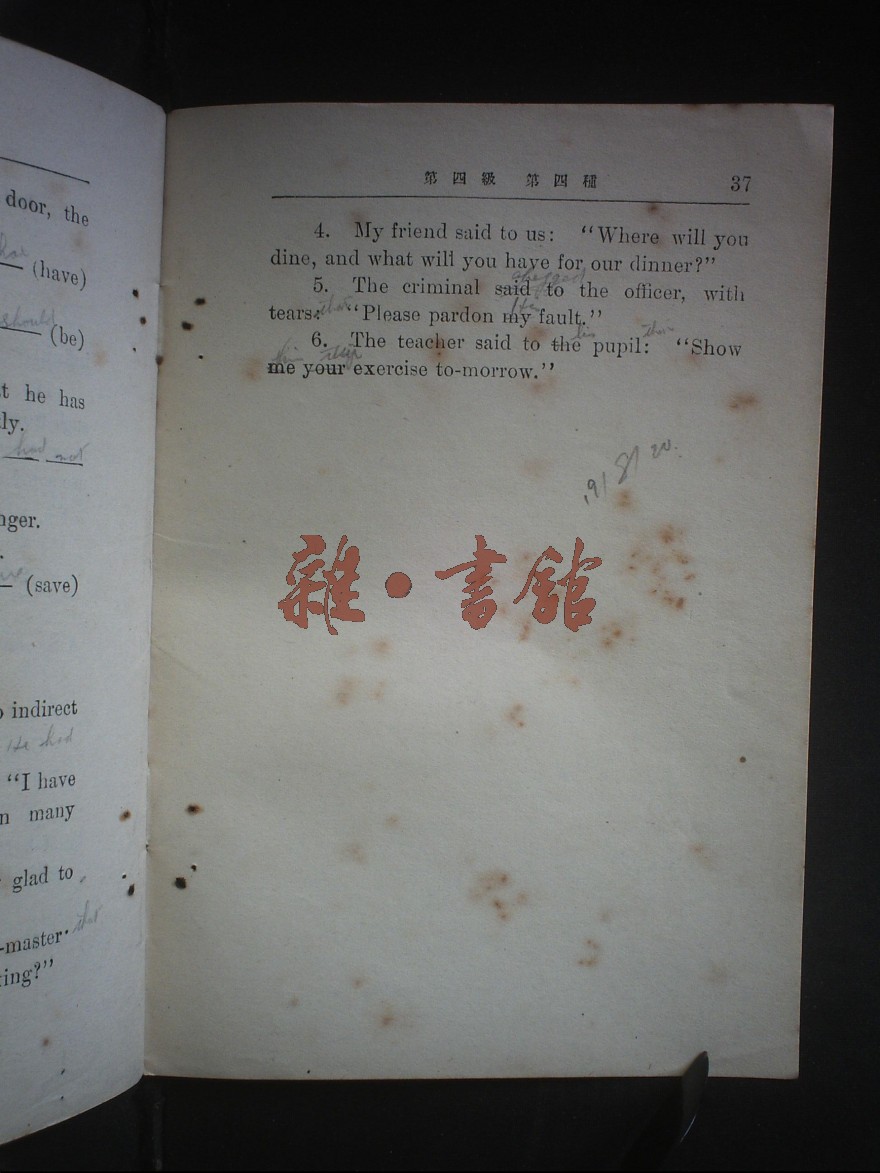 door, the
(have)
should
(be)
he has
had not
(save)
indirect
He had
"I have
many
glad to
that
-master
第四級 第四種 37
4. My friend said to us: "Where will you
dine, and what will you have for our dinner?"
5. The criminal said to the officer, with
tears: "Please pardon my fault."
that
6. The teacher said to the pupil: "Show
me your exercise to-morrow."
雜·書館